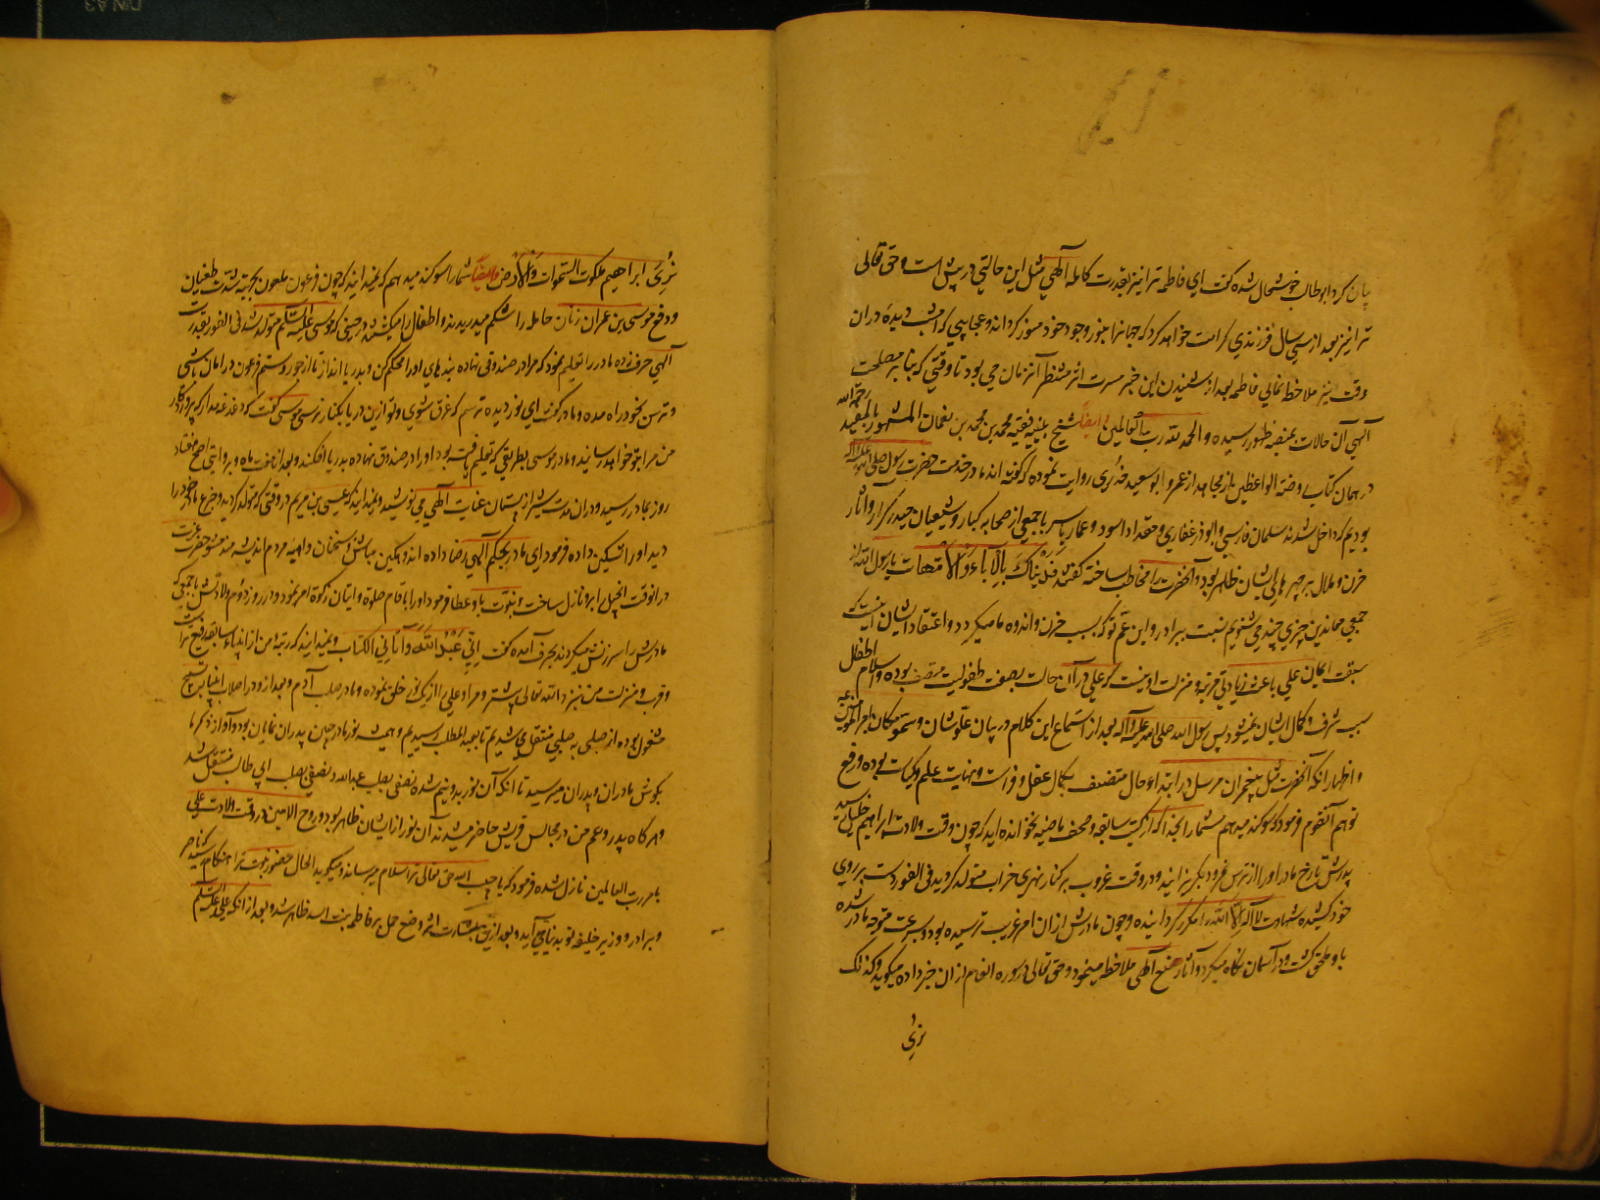 بیان کرد ابوطالب خوشحال شده گفت ای فاطمه ترا نیز بقدرت کامله الهی مثل این حالتی در پیش است و حق تعالی
ترا نیز بعد از سی سال فرزندی کرامت خواهد کرد که جهانرا بنور وجود خود منور گرداند و عجایبی که امشب دیدهٔ در آن
وقت نیز ملاحظه نمائی فاطمه بعد از شنیدن این خبر مسرت اثر منتظر آنزمان می بود تا وقتی که بنا بر مصلحت
الهی آن حالات بمنصه ظهور رسیده والحمد لله رب العالمین ایضا شیخ فقیه محمد بن محمد بن نعمان المشهور بالمفید رحمه الله
در همان کتاب روضة الواعظین از مجاهد از عمرو ابو سعید خدری روایت نموده که گفته اند ما در خدمت حضرت رسول صلی الله علیه وآله
بودیم که داخل شدند سلمان فارسی و ابوذر غفاری و مقداد اسود و عمار یاسر با جمعی از صحابه کبار و شیعیان حیدر کرار و آثار
حزن و ملال بر چهرهای ایشان ظاهر بود و آنحضرت را مخاطب ساخته گفتند فدیناک بالآباء والامهات یا رسول الله از
جمعی معاندین چیزی چند می شنویم نسبت ببرادر و ابن عم تو که سبب حزن و اندوه ما میگردد و اعتقاد ایشان اینست که
سبقت ایمان علی باعث زیادتی قرب و منزلت او نیست که علی در آن حالت بصفت طفولیت متصف بوده و اسلام اطفال
سبب شرف و کمال ایشان نمیشود پس رسول الله صلی الله علیه وآله بعد از استماع این کلام در بیان علو شان و سمو مکان امیر المؤمنین
و اظهار آنکه آنحضرت مثل پیغمبران مرسل در ابتداء حال متصف بکمال عقل و فراست و نهایت علم و کیاست بوده و رفع
توهم آنقوم فرمود که سوگند میدهم شمارا بخدا که از کتب سابقه و صحف ماضیه نخوانده اید که چون وقت ولادت ابراهیم خلیل رسید
پدرش تارخ مادر او را از ترس نمرود بگریزانید و در وقت غروب بر کنار نهری خراب متولد گردید فی الفور دست بر روی
خود کشیده شهادت لا اله الا الله را مکرر گردانیده و چون مادرش از ان امر غریب ترسیده بود بسرعت متوجه مادر شده
باو ملحق گشت و در آسمان نگاه میکرد و آثار صنع الهی ملاحظه مینمود و حق تعالی در سوره انعام از ان خبر داده میگوید و کذلک
نری
نری ابراهیم ملکوت السموات والارض و ایضا شمارا سوگند میدهم که نمیدانید که چون فرعون ملعون بجهت شدت طغیان
و دفع موسی بن عمران زنان حامله را شکم میدریدند و اطفال را میکشتند در حینی که موسی علیه السلام متولد شد فی الفور بقدرت
الهی حرف زده مادر را تعلیم نمود که مرا در صندوقی نهاده بندهای او را محکم کن و بدریا انداز تا از جور و ستم فرعون در امان باشی
و ترس بخود راه مده و مادر گفت ای نور دیده ترسم که غرق شوی و تو ازین دریا بکنار نرسی موسی گفت که دغدغه مدار که پروردگار
من مرا بتو خواهد رسانید و مادر موسی بطریقی که تعلیم یافته بود او را در صندوق نهاده بدریا افکند و بعد از هفت ماه و بروایتی اصح هفتاد
روز بمادر رسید و در ان مدت شیر از پستان عنایت الهی می نوشید و نمیدانید که عیسی بن مریم در وقتی که متولد گردید و جزع مادر خود را
دید او را تسکین داده فرمود ای مادر بحکم الهی رضا داده اندوهگین مباش از سخنان واهیه مردم اندیشه مند مشو حضرت عزت
در آنوقت انجیل بر او نازل ساخت و نبوت باو عطا فرمود و او را باقام صلوة و ایتای زکوة امر نمود و در روز دوم ولادتش با جمعی که
مادرش را سرزنش میکردند بحرف آمده گفت انی عبد الله و آتانی الکتاب و نمیدانید که رتبه من از انبیاء سابقه رفیع تر است
و قرب و منزلت من نزد الله تعالی بیشتر و مرا و علی را از یک نور خلق نموده و ما در صلب آدم و بعد از و در اصلاب انبیا به تسبیح
مشغول بوده از صلبی به صلبی منتقل می شدیم تا بعبد المطلب رسیدیم و همیشه نور ما در جبین پدران نمایان بود و آواز ذکر ما
بگوش مادران و پدران میرسید تا آنکه آن نور بدو نیم شده نصفی بصلب عبدالله و نصفی بصلب ابی طالب منتقل شد
و هر گاه پدر و عم من در مجالس قریش حاضر میشدند آن نور از ایشان ظاهر بود و روح الامین در وقت ولادت علی
بامر رب العالمین نازل شده فرمود که یا حبیب الله حق تعالی ترا سلام میرساند و میگوید الحال حضور نبوت ترا هنگام رسید که ناصر
و برادر و وزیر و خلیفه تو بدنیا می آید و بعد از بشارت اثر وضع حمل بر فاطمه بنت اسد ظاهر شد و بعد از آنکه علی علیه السلام